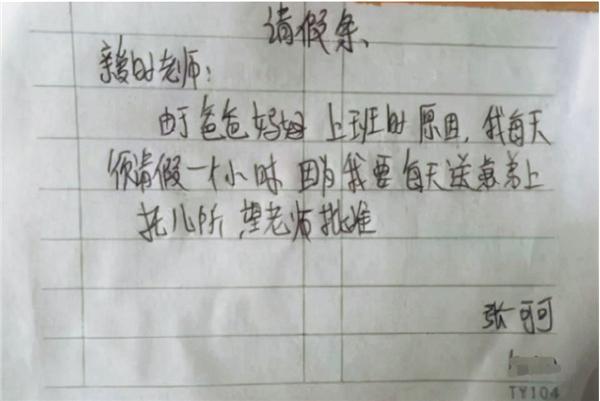 请假条
亲爱的老师：
由于爸爸妈妈上班的原因，我每天
须请假一个小时因为我要每天送弟弟上
托儿所，望老师批准
张可可
TY104